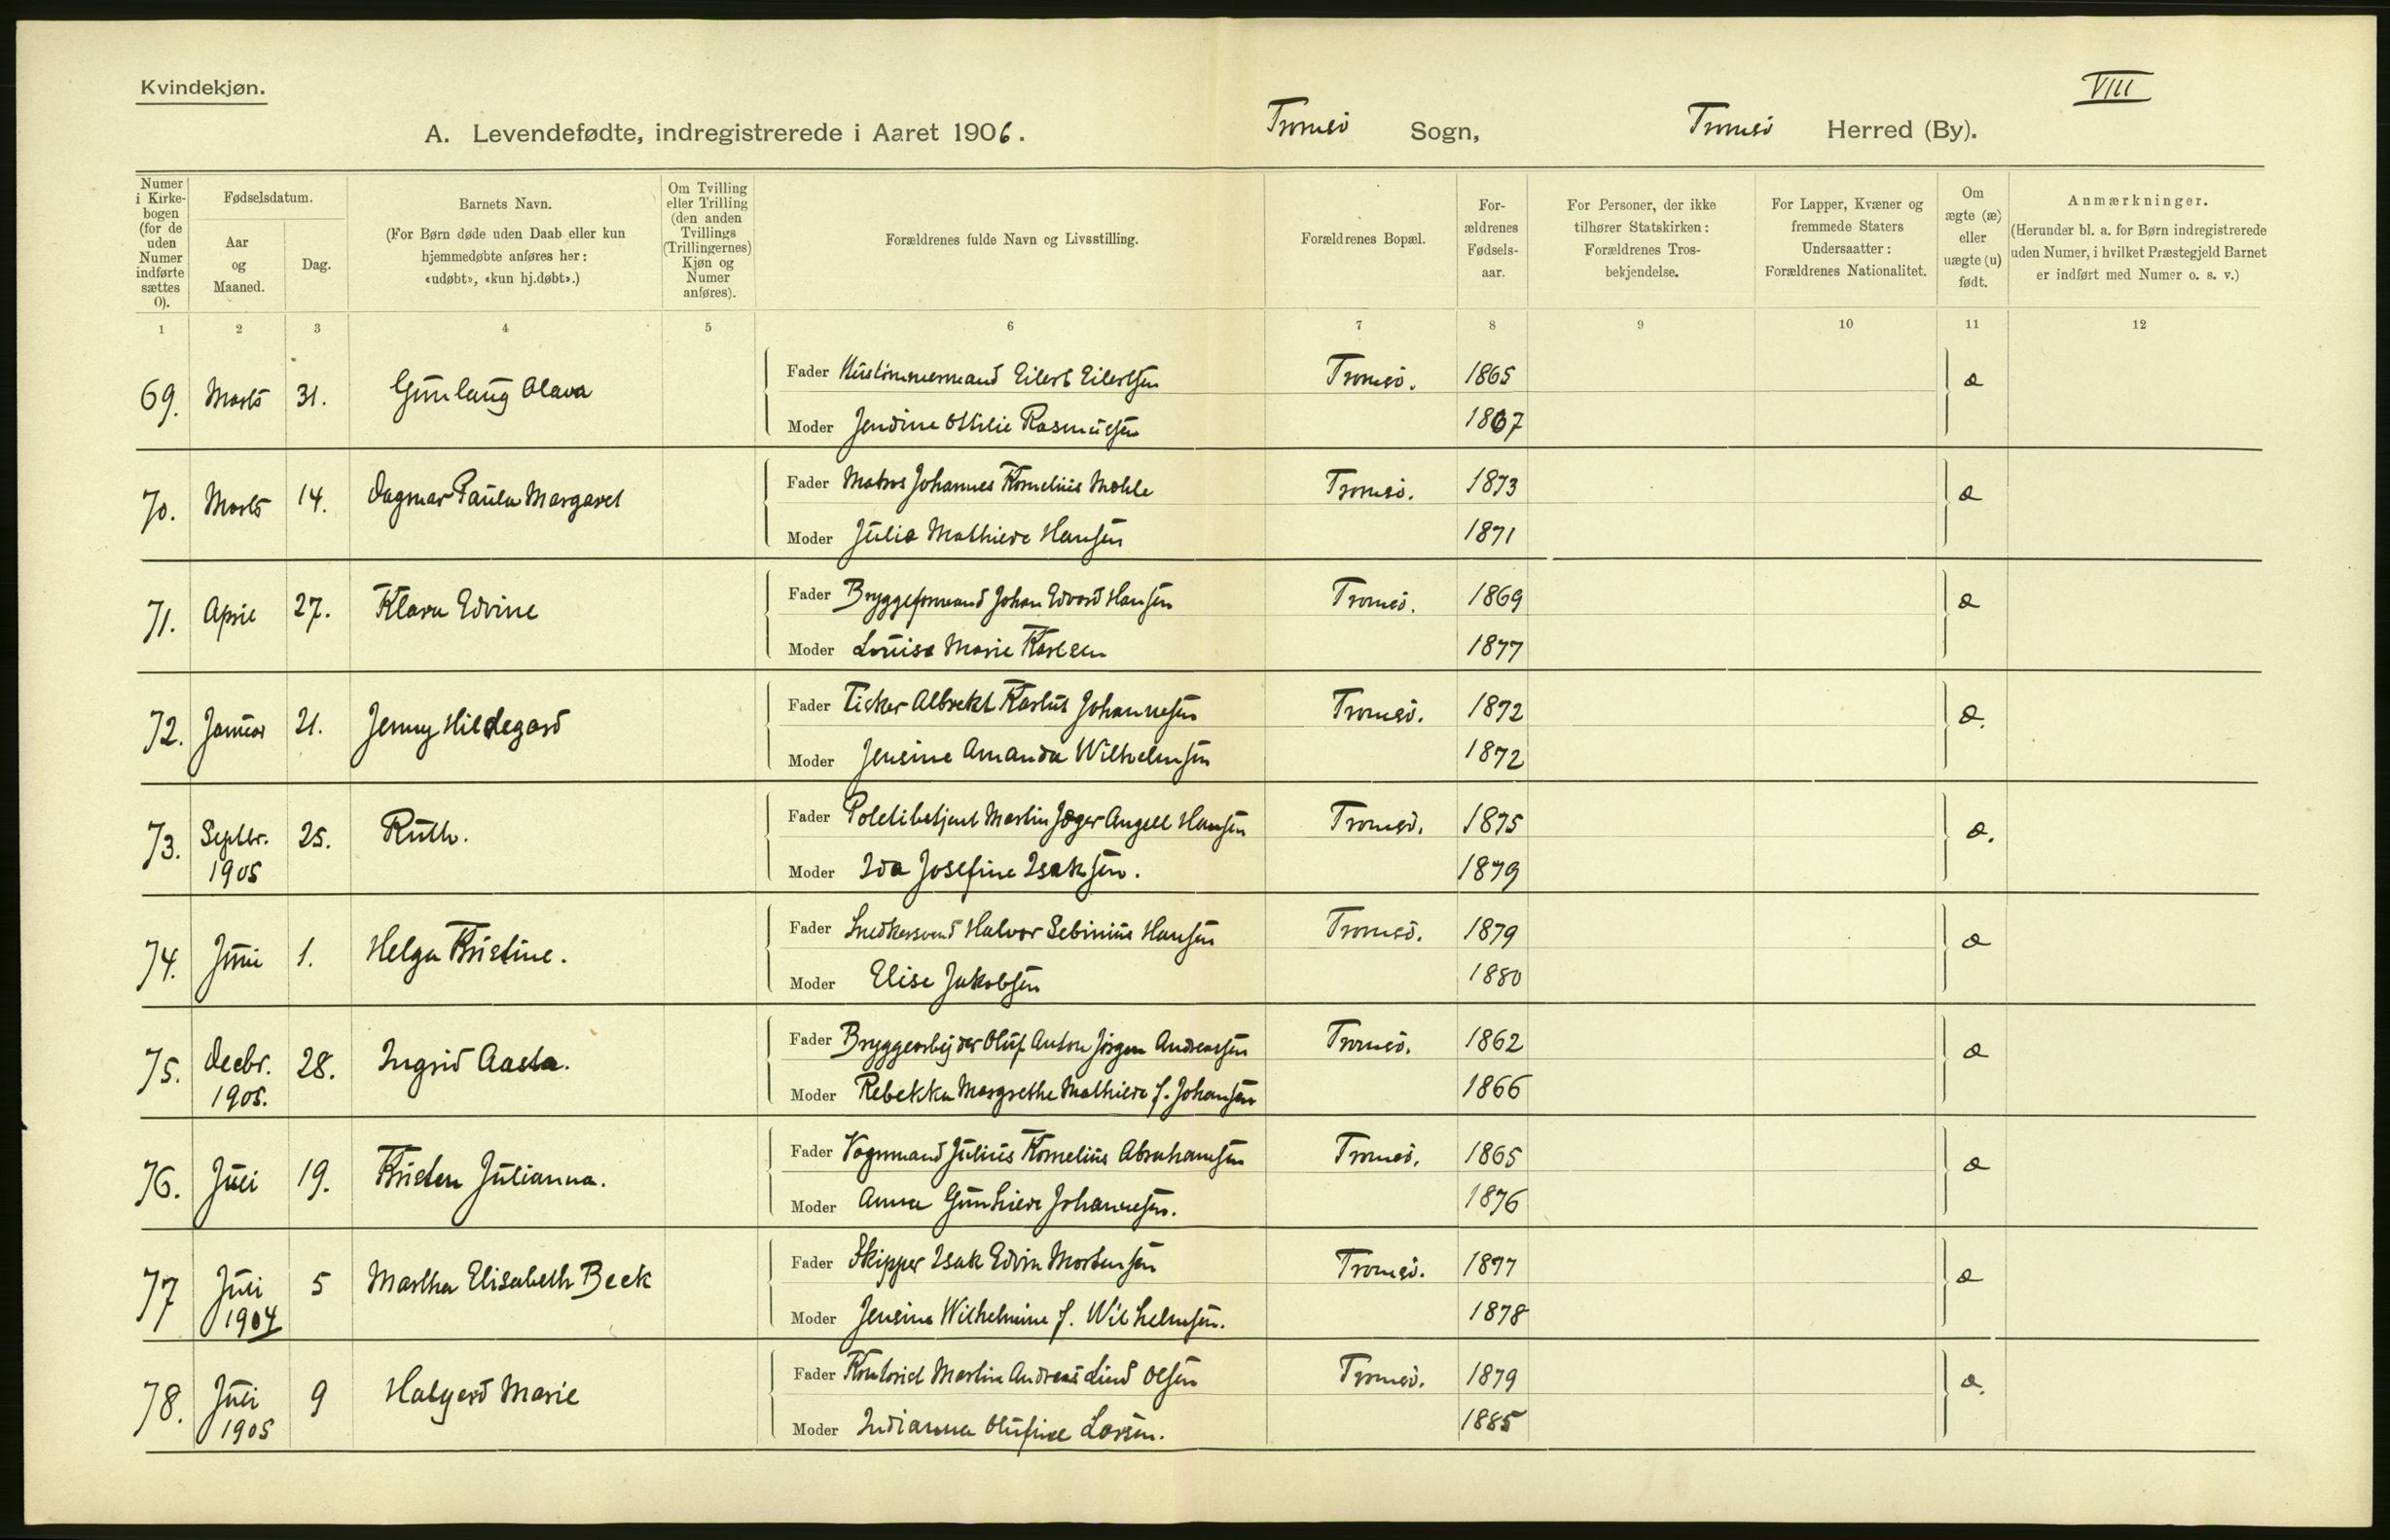 Kvindekjøn.
VIII
A. Levendefødte, indregistrerede i Aaret 1906. Tromsö Sogn, Tromsö Herred (By).
Numer i Kirkebogen (for de uden Numer indførte sættes 0).
Fødselsdatum.
Aar og Maaned.
Dag.
Barnets Navn.
(For Børn døde uden Daab eller kun hjemmedøbte anføres her: «udøbt», «kun hj.døbt».)
Om Tvilling eller Trilling (den anden Tvillings (Trillingernes) Kjøn og Numer anføres).
Forældrenes fulde Navn og Livsstilling.
Forældrenes Bopæl.
For-ældrenes Fødsels-aar.
For Personer, der ikke tilhører Statskirken: Forældrenes Tros-bekjendelse.
For Lapper, Kvæner og fremmede Staters Undersaatter: Forældrenes Nationalitet.
Om ægte (æ) eller uægte (u) født.
Anmærkninger.
(Herunder bl. a. for Børn indregistrerede uden Numer, i hvilket Præstegjeld Barnet er indført med Numer o. s. v.)
1 2 3 4 5 6 7 8 9 10 11 12
69. Marts 31. Gunlaug Olava Fader Hustömmermand Eilert Eilertsen Tromsö. 1865 æ
Moder Jendine Ottilie Rasmussen 1867
70. Marts 14. Dagmar Paula Margaret Fader Matros Johannes Kornelius Mohle Tromsö. 1873 æ
Moder Julia Mathilde Hansen 1871
71. April 27. Klara Edvine Fader Bryggeformand Johan Edvard Hansen Tromsö. 1869 æ
Moder Lovisa Marie Karlsen 1877
72. Januar 21. Jenny Hildegard Fader Fisker Albrekt Kastus Johannesen Tromsö. 1872 æ.
Moder Jensine Amanda Wilhelmsen 1872
73. Septbr. 1905 25. Ruth. Fader Politibetjent Martin Jæger Angell Hansen Tromsö. 1875 æ.
Moder Ida Josefine Isaksen. 1879
74. Juni 1. Helga Kristine. Fader Snedkersvend Halvor Sebinius Hansen Tromsö. 1879 æ
Moder Elise Jakobsen 1880
75. Decbr. 1905. 28. Ingrid Aasta. Fader Bryggearbejder Oluf Anton Jörgen Andreassen Tromsö. 1862 æ
Moder Rebekka Margrethe Mathilde f. Johansen 1866
76. Juli 19. Kristen Julianna. Fader Vognmand Julius Kornelius Abrahamsen Tromsö. 1865 æ
Moder Anna Gunhilde Johannesen. 1876
77 Juli 1904 5 Martha Elisabeth Beck Fader Skipper Isak Edvin Mortensen Tromsö. 1877 æ
Moder Jensine Wilhelmine f. Wilhelmsen. 1878
78. Juli 1905 9 Halgerd Marie Fader Kontorist Martin Andreas Lind Olsen Tromsö. 1879 æ.
Moder Indianna Olufine Larsen. 1885